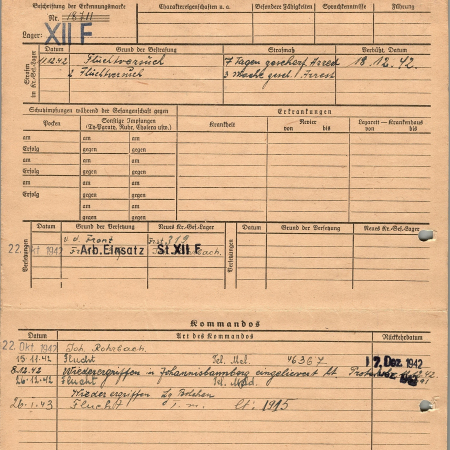 Beschriftung der Erkennungsmarke Charaktereigenschaften u. a. Besondere Fähigkeiten Sprachkenntnisse Führung
Nr. 18711
Lager: XII F
Strafen im Kr.-Gef.-Lager Datum Grund der Bestrafung Strafmaß Verbüßt, Datum
11.12.42 Fluchtversuch 7 Tagen geschärf. Arrest 18.12.42.
2 Fluchtversuch 3 Arrest
Schutzimpfungen während der Gefangenschaft gegen Erkrankungen
Pocken Sonstige Impfungen (Ty-Paraty, Ruhr, Cholera usw.) Krankheit Revier von bis Lazarett — Krankenhaus von bis
am am
Erfolg gegen gegen
am am
Erfolg gegen gegen
am am
Erfolg gegen gegen
am am
Erfolg gegen gegen
Versetzungen Datum Grund der Versetzung Neues Kr.-Gef.-Lager Versetzungen Datum Grund der Versetzung Neues Kr.-Gef.-Lager
v. d. Front
22. Okt 1942 Arb. Einsatz St. XII F
Kommandos
Datum Art des Kommandos Rückkehrdatum
22. Okt. 1942 Joh. Rohrbach.
15.11.42 Flucht Tel. Mel. 46367 17. Dez. 1942
8.12.42 Wiederergriffen in eingeliefert lt.
26.12.42 Flucht Tel.
Wiederergriffen
26.1.43 Flucht T. m. lt. 1915